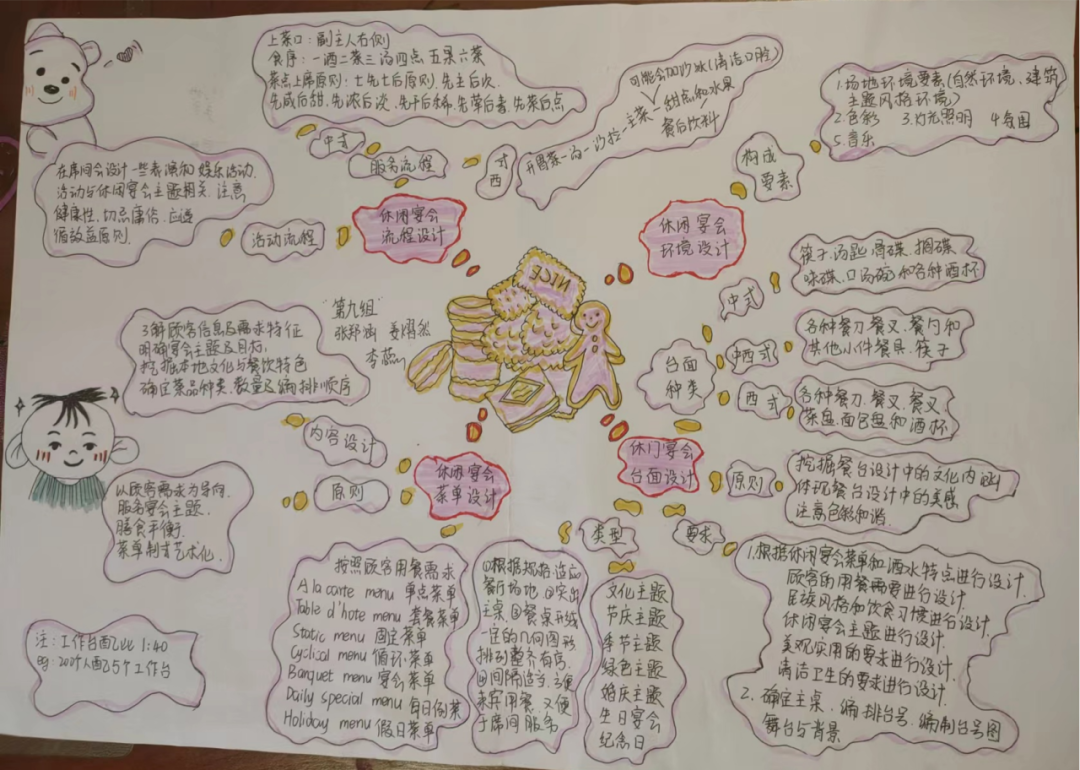 上菜口:副主人右侧
食序:一酒二菜三汤四点五果六茶
菜点上席原则:七先七后原则,先主后次,
先咸后甜,先浓后淡,先干后稀,先荤后素,先菜后点
中式
服务流程
西式
开胃菜一汤一沙拉一主菜一甜点和水果
餐后饮料
可能会加沙冰(清洁口腔)
1.场地环境要素(自然环境、建筑
主题风格环境)
2.色彩 3.灯光照明 4.氛围
5.音乐
构成
要素
在席间会设计一些表演和娱乐活动.
活动与休闲宴会主题相关,注意
健康性,切忌庸俗,应遵
循效益原则.
活动流程
休闲宴会
流程设计
休闲宴会
环境设计
筷子.汤匙.骨碟.
味碟、口汤碗和各种酒杯
中式
各种餐刀餐叉、餐勺和
其他小件餐具.筷子
中西式
台面
种类
西式
各种餐刀、餐叉、餐叉、
菜盘.面包盘和酒杯
NICE
"第九组"
了解顾客信息及需求特征
明确宴会主题及目标.
挖掘本地文化与餐饮特色
确定菜品种类.数量及编排顺序
内容设计
原则
休闲宴会
菜单设计
休门宴会
台面设计
原则
挖掘餐台设计中的文化内涵
体现餐台设计中的美感
注意色彩和谐.
以顾客需求为导向.
服务宴会主题.
膳食平衡.
菜单制式艺术化.
类型
要求
按照顾客用餐需求
A la carte menu 单点菜单
Table d'hote menu 套餐菜单
Static menu 固定菜单
Cyclical menu 循环菜单
Banquet menu 宴会菜单
Daily special menu 每日例菜
Holiday menu 假日菜单
①根据规格.适应
餐厅场地 ②突出
主桌 ③餐桌形成
一定的几何图形
排列整齐有序.
④间隔适当.方便
来宾用餐.又便
于席间服务
文化主题
节庆主题
季节主题
绿色主题
婚庆主题
生日宴会
纪念日
1.根据休闲宴会菜单和酒水特点进行设计.
顾客的用餐需要进行设计.
民族风格和饮食习惯进行设计.
休闲宴会主题进行设计.
美观实用的要求进行设计.
清洁卫生的要求进行设计.
2.确定主桌、编排台号、编制台号图
舞台与背景
注:工作台配比 1:40
eg:200个人配5个工作台